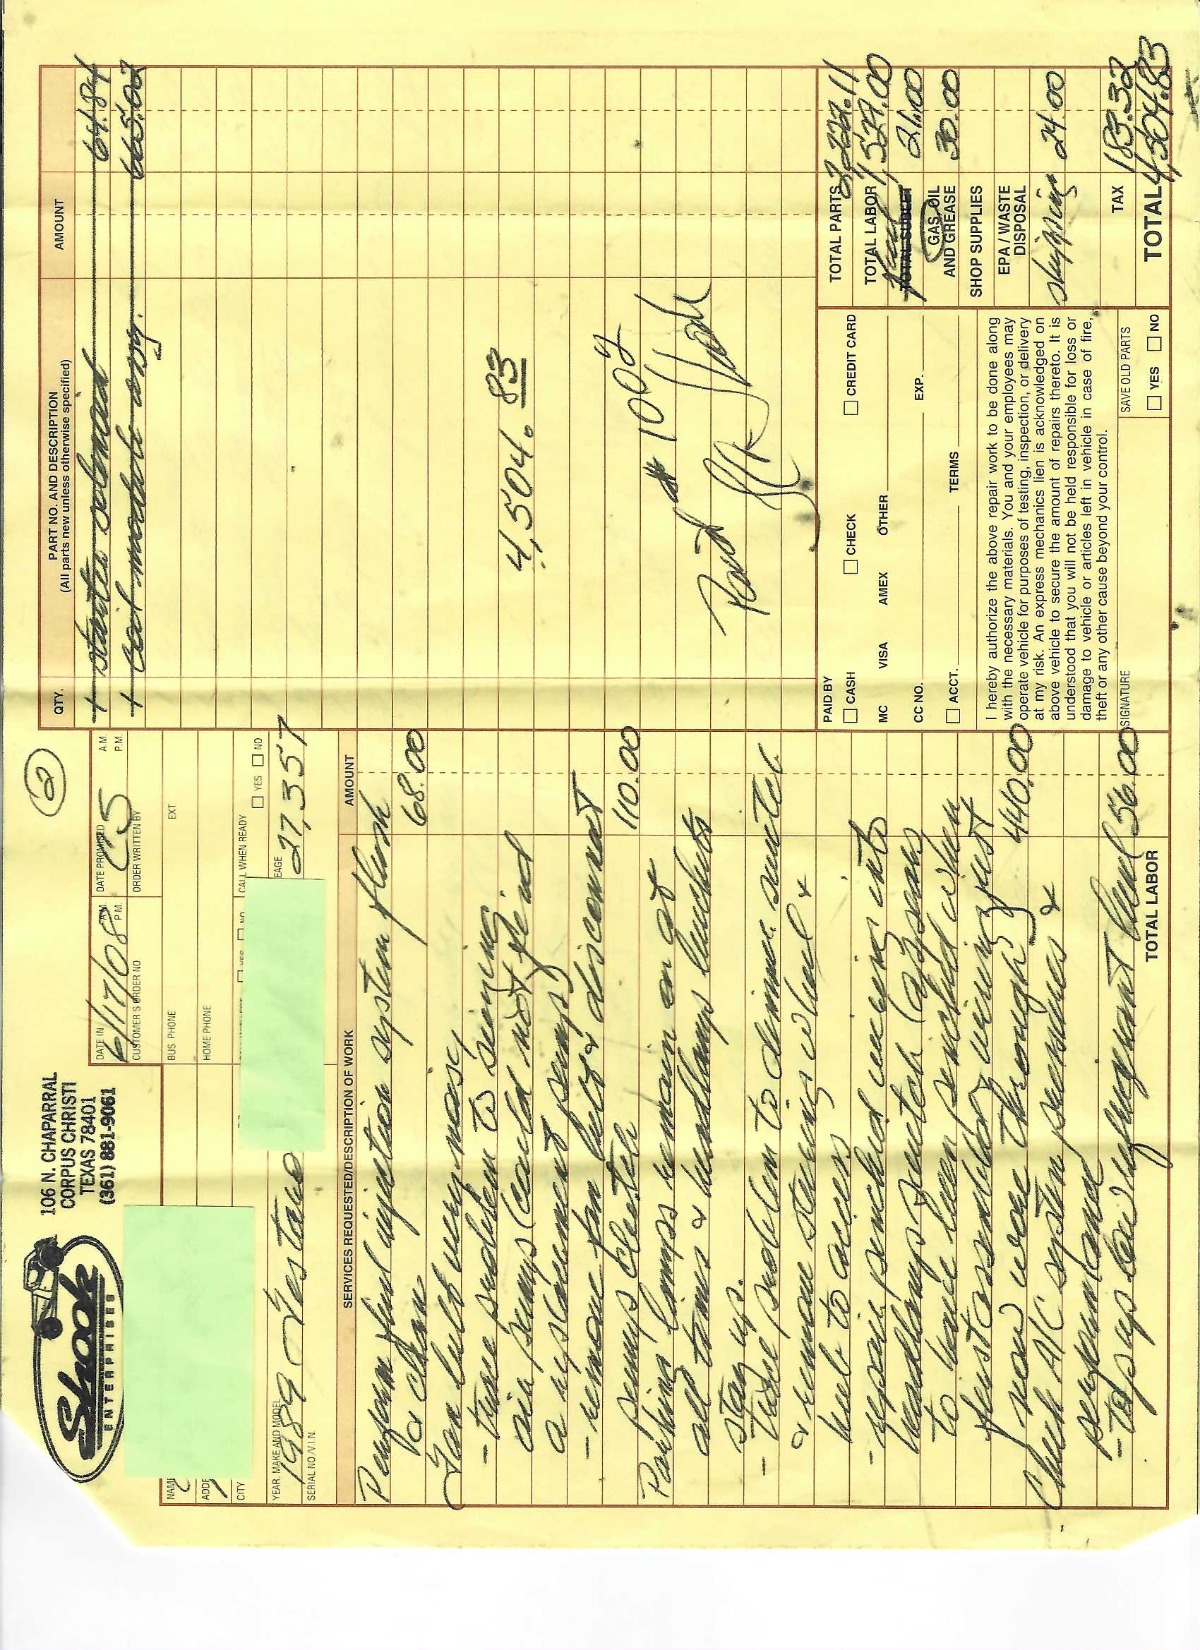 Shook
ENTERPRISES
106 N. CHAPARRAL
CORPUS CHRISTI
TEXAS 78401
(361) 881-9061
2
NAME
ADDR
CITY
DATE IN
6/17/08
A.M.
P.M.
DATE PROMISED
A.M.
P.M.
CUSTOMER'S ORDER NO
ORDER WRITTEN BY
BUS. PHONE
EXT
HOME PHONE
NO
CALL WHEN READY
YES NO
YEAR, MAKE AND MODEL
1989 Testarossa
SERIAL NO./V.I.N.
EAGE
27,357
SERVICES REQUESTED/DESCRIPTION OF WORK
AMOUNT
Perform fuel injection system flush
& clean 68.00
Fan belt very noisy
- trace problem to seizing
air pump (could not find
a replacement pump)
- remove fan belt & disconnect
pump clutch 110.00
Parking lamps remain on at
all times & headlamp buckets
stay up.
- trace problem to dimmer switch
& remove steering wheel &
hub to access
- repair pinched wiring into
headlamp switch (appears
to have been pinched when
first assembled, wiring just
now wore through) 440.00
Check A/C system pressures &
performance
- top up low refrigerant level 56.00
TOTAL LABOR
QTY.
PART NO. AND DESCRIPTION
(All parts new unless otherwise specified)
AMOUNT
1 starter solenoid 64.84
1 coil module assy. 665.02
4,504.83
Paid # 1002
PAID BY
CASH CHECK CREDIT CARD
MC VISA AMEX OTHER
CC NO. EXP.
ACCT. TERMS
I hereby authorize the above repair work to be done along
with the necessary materials. You and your employees may
operate vehicle for purposes of testing, inspection, or delivery
at my risk. An express mechanics lien is acknowledged on
above vehicle to secure the amount of repairs thereto. It is
understood that you will not be held responsible for loss or
damage to vehicle or articles left in vehicle in case of fire,
theft or any other cause beyond your control.
SIGNATURE
SAVE OLD PARTS
YES NO
TOTAL PARTS 2,222.11
TOTAL LABOR 1,529.00
TOTAL SUBLET fuel 26.00
GAS, OIL
AND GREASE 30.00
SHOP SUPPLIES
EPA / WASTE
DISPOSAL
shipping 24.00
TAX 183.32
TOTAL 4,504.83